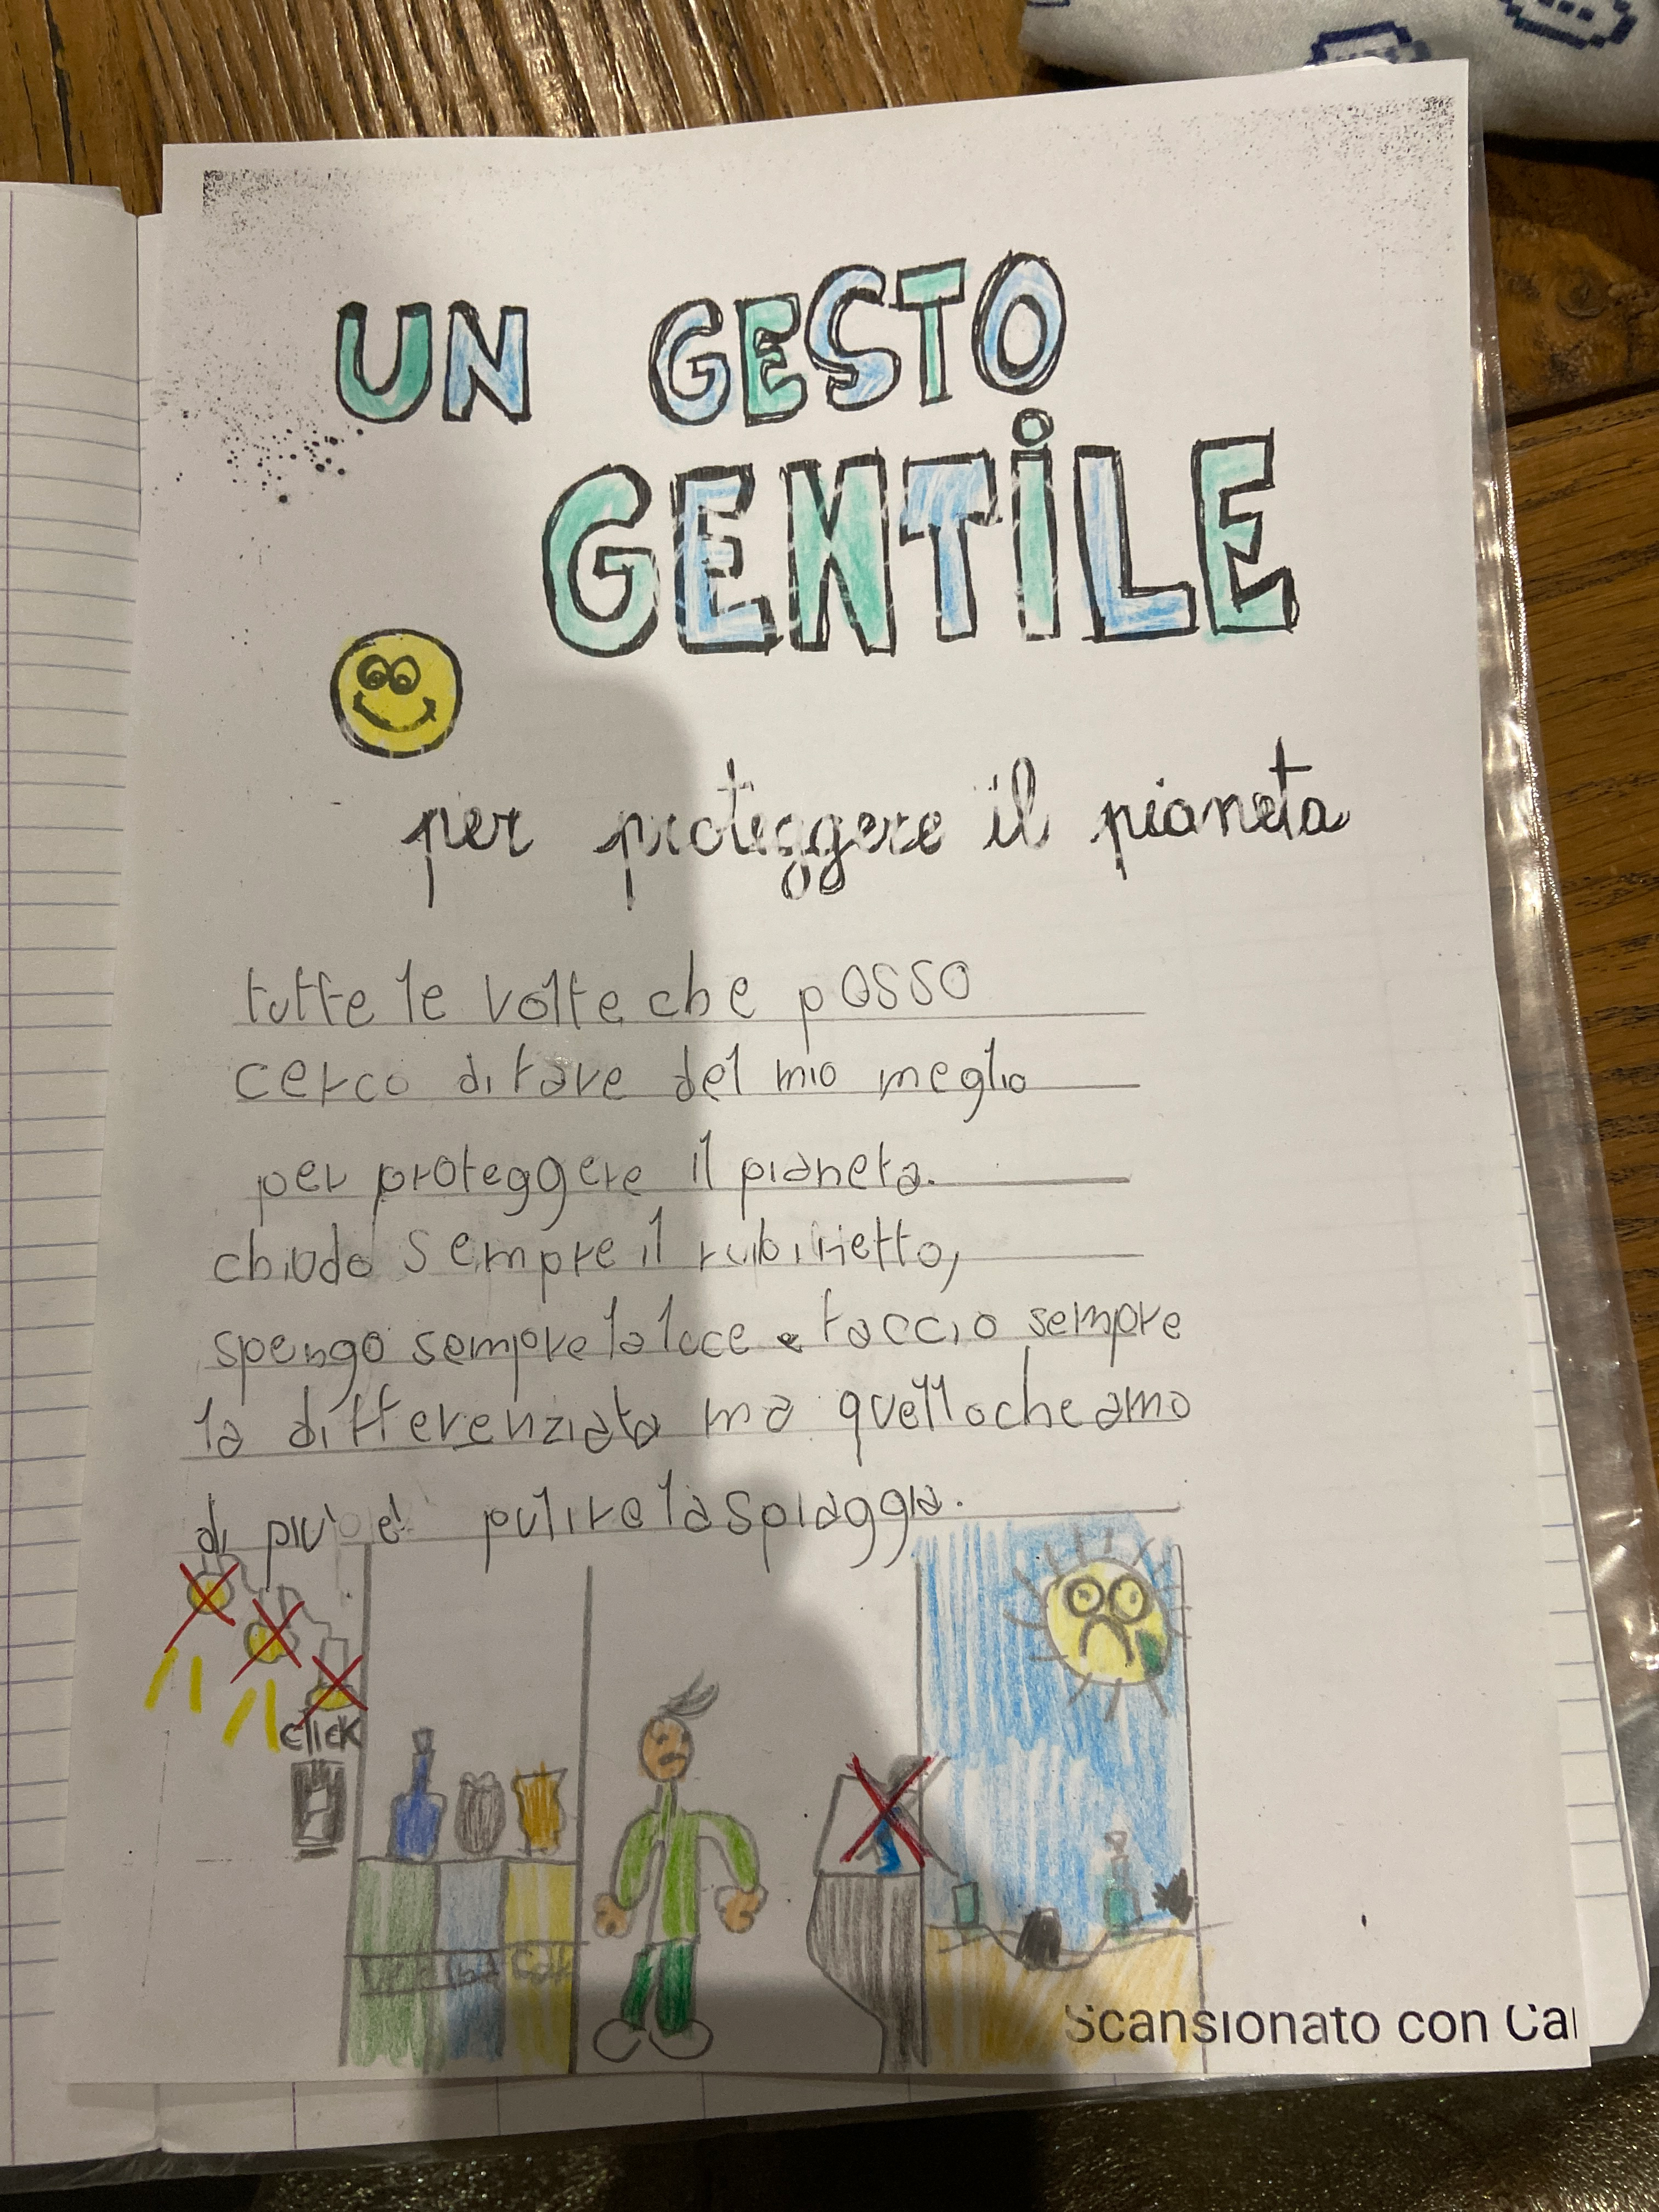 UN GESTO
GENTILE
per proteggere il pianeta
tutte le volte che posso
cerco di fare del mio meglio
per proteggere il pianeta.
chiudo sempre il rubinetto,
spengo sempre la luce e faccio sempre
la differenziata ma quello che amo
di piu' e' pulire la spiaggia.
click
Scansionato con Ca